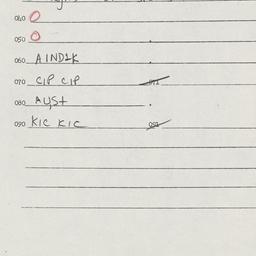 040 O
050 O
060 A INDIK
070 CIP CIP 071
080 AUST
090 KIC KIC 091